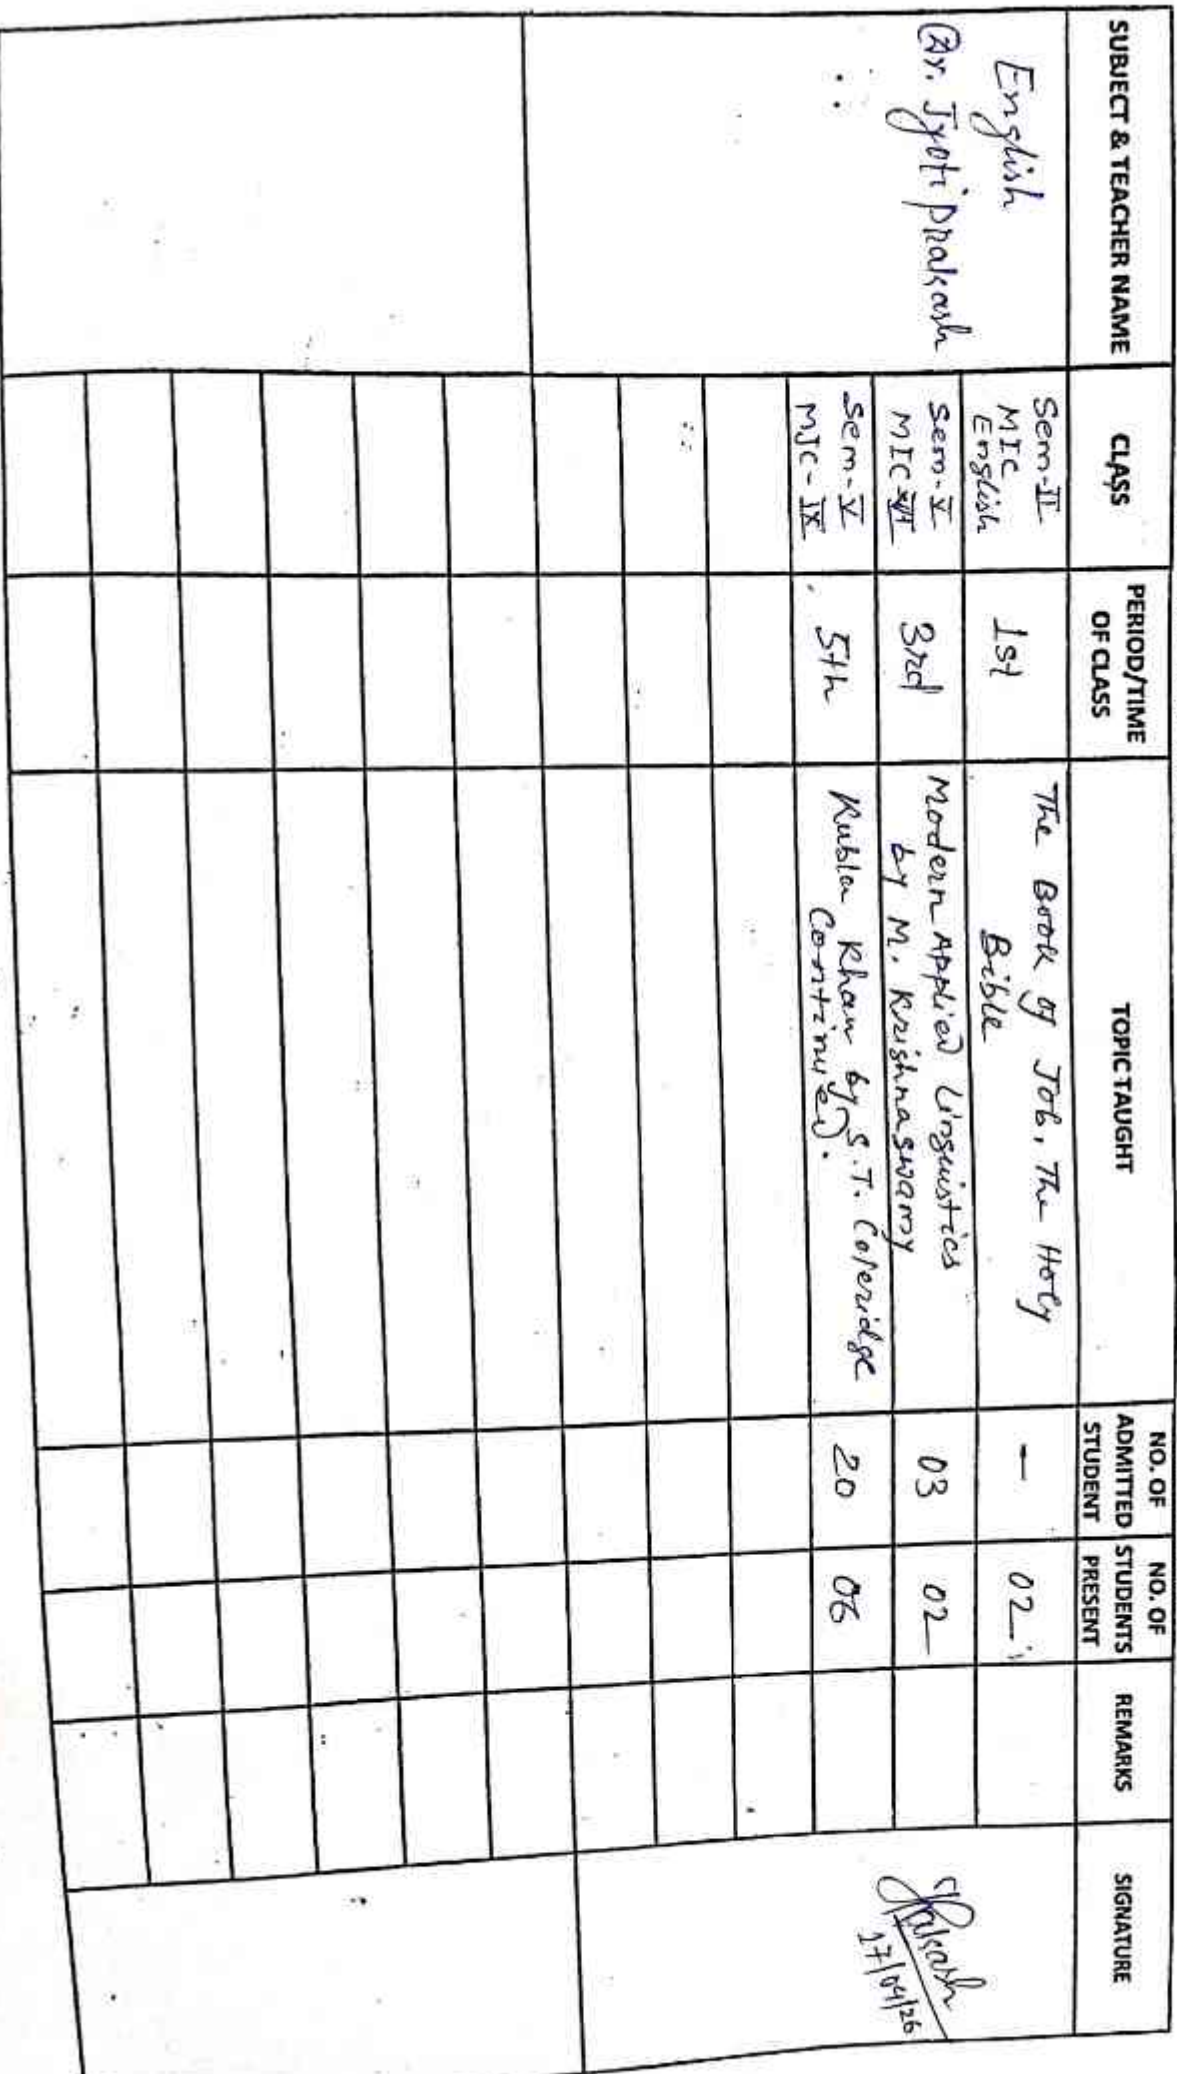 SUBJECT & TEACHER NAME
CLASS
PERIOD/TIME
OF CLASS
TOPIC TAUGHT
NO. OF
ADMITTED
STUDENT
NO. OF
STUDENTS
PRESENT
REMARKS
SIGNATURE
English
(Dr. Jyoti Prakash
Sem-II
MIC
English
1st
The Book of Job, The Holy
Bible
—
02
Sem-V
MIC
3rd
Modern Applied Linguistics
by M. Krishnaswamy
03
02
Sem-V
MJC-IX
5th
Kubla Khan by S.T. Coleridge
Continued.
20
06
Prakash
17/04/26